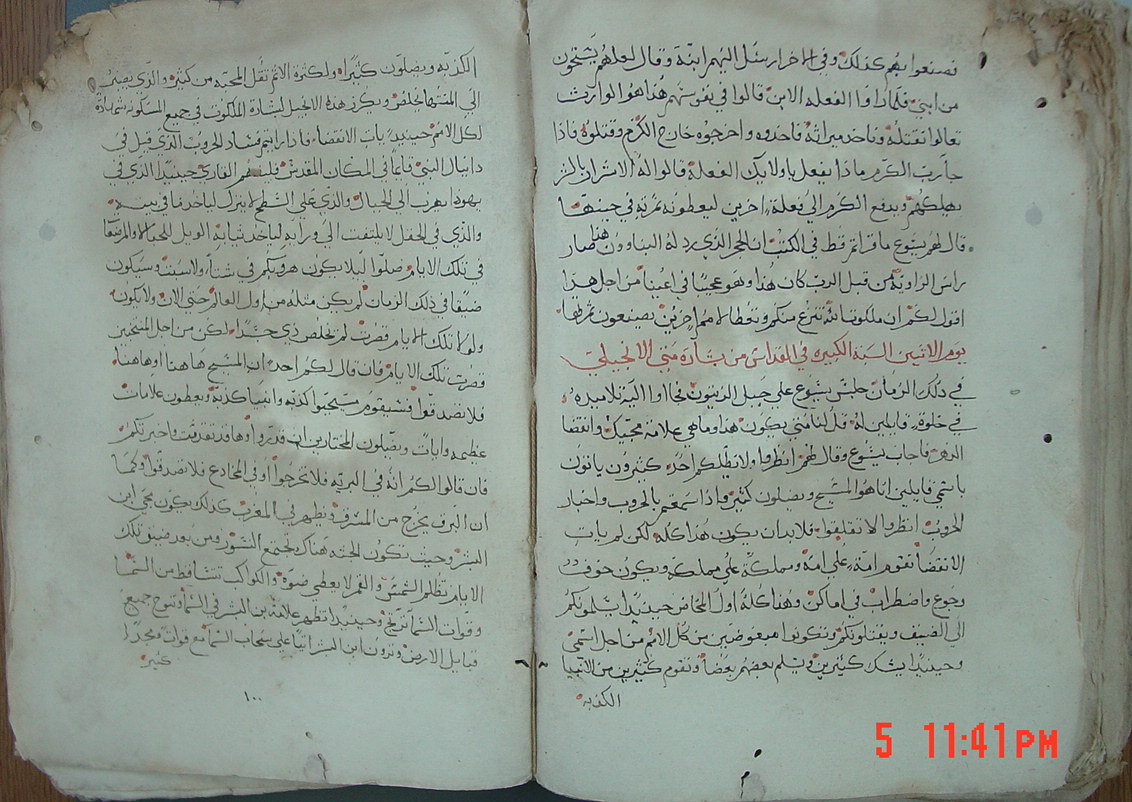 فصنعوا بهم كذلك وفي الاخر ارسل اليهم ابنه وقال لعلهم يستحون
من ابني فلما راوا الفعله الابن قالوا في نفوسهم هذا هو الوارث
تعالوا نقتله وناخد ميراثه فاخدوه واخرجوه خارج الكرم وقتلوه فاذا
جا رب الكرم ماذا يفعل باولايك الفعله قالوا له الاشرار بالشر
يهلكهم ويدفع الكرم الي فعلة اخرين ليعطونه ثمرته في حينها
قال لهم يسوع ما قراتم قط في الكتب ان الحجر الذي رد له البناوون هذا صار
راس الزاويه من قبل الرب كان هذا وهو عجيبا في اعيننا من اجل هدا
اقول لكم ان ملكوت الله تنزع منكم وتعطا لامم اخرين يصنعون ثمرتها
يوم الاتنين السنة الكبيره في القداس من بشارة متي الانجيلي
في ذلك الزمان جلس يسوع علي جبل الزيتون فجااوا اليه تلاميده
في خلوة قايلين له قل لنا متي يكون هذا وما هي علامة مجيك وانقضا
الدهر فاجاب يسوع وقال لهم انظروا ولا يظلكم احد كثيرون ياتون
باسمي قايلين انا هو المسيح ويضلون كثير واذا سمعتم بالحروب واخبار
الحروب انظروا لا تقلقوا فلا بد ان يكون هذا كله لكن لم يات
الانقضا تقوم امة علي امة ومملكة علي مملكة ويكون خوف
وجوع واضطراب في اماكن وهذا كله اول المخاض حينيدا يسلمونكم
الي الضيق ويقتلونكم وتكونوا مبغوضين من كل الامم من اجل اسمي
وحينيدا يشك كثيرين ويسلم بعضهم بعضا وتقوم كثيرين من الانبيا
الكذبه
الكذبه ويضلون كثيرا ولكثرة الاثم تقل المحبه من كثير والذي يصبر
الي المنتها يخلص ويكرز هذه الانجيل بشارة الملكوت في جميع المسكونه شهادة
لكل الامم حينيد يات الانقضا فاذا رايتم فساد الحروب الذي قيل في
دانيال النبي قايما في المكان المقدس فليفهم القاري حينيدا الذي في
يهودا يهرب الي الجبال والذي علي السطح لا ينزل لياخد ما في بيته
والذي في الحقل لا يلتفت الي ورايه لياخد ثيابه الويل للحبالا والمرضعا
في تلك الايام صلوا ليلا يكون هروبكم في شتا ولا سبت وسيكون
ضيقا في ذلك الزمان لم يكن مثله من اول العالم حتي الان ولا يكون
ولولا تلك الايام قصرت لم تخلص ذي جسد لكن من اجل المنتخبين
قصرت تلك الايام فان قال لكم احد ان المسيح هاهنا او هاهنا
فلا تصدقوا فسيقوم مسيحيوا كدبه وانبيا كدبه ويعطون علامات
عظيمه وايات ويضلون المختارين ان قدروا وها قد تقدمت واخبرتكم
فان قالوا لكم انه في البريه فلا تخرجوا او في المخادع فلا تصدقوا وكما
ان البرق يخرج من المشرق ويظهر في المغرب كدلك يكون مجي ابن
البشر وحيث تكون الجثه هناك تجتمع النسور ومن بعد ضيق تلك
الايام تظلم الشمس والقمر لا يعطي ضوه والكواكب تتساقط من السما
وقوات السما ترتج وحينيدا تظهر علامة بن البشر في السما وتنوح جميع
قبايل الارض وترون ابن البشر اتيا علي سحاب السما مع قوات ومجدا
كثير
١٠٠
5 11:41PM